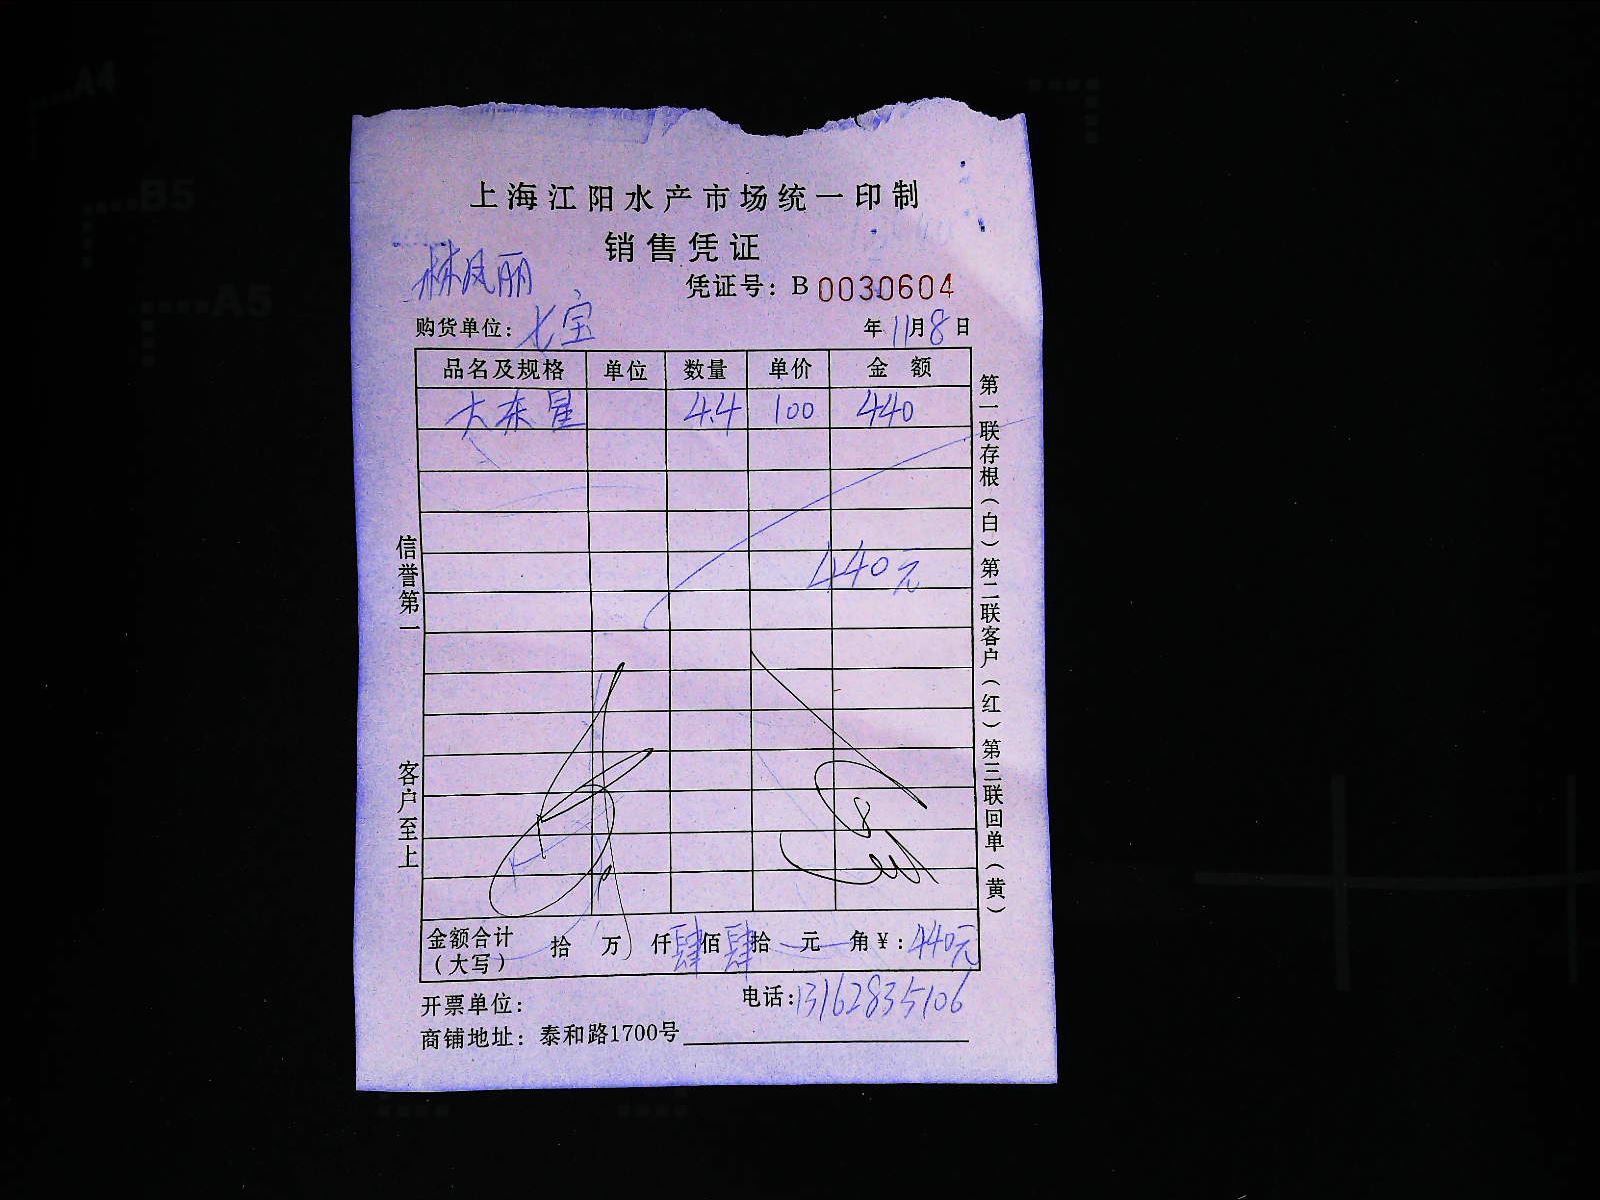 上海江阳水产市场统一印制
销售凭证
林凤丽
凭证号：B 0030604
购货单位：七宝 年11月8日
品名及规格 单位 数量 单价 金额
大东星 4.4 100 440
440元
信誉第一 客户至上
第一联存根（白）第二联客户（红）第三联回单（黄）
金额合计（大写） 拾 万 仟肆佰肆拾 元 角¥：440元
开票单位： 电话：13162835106
商铺地址：泰和路1700号
A4
B5
A5